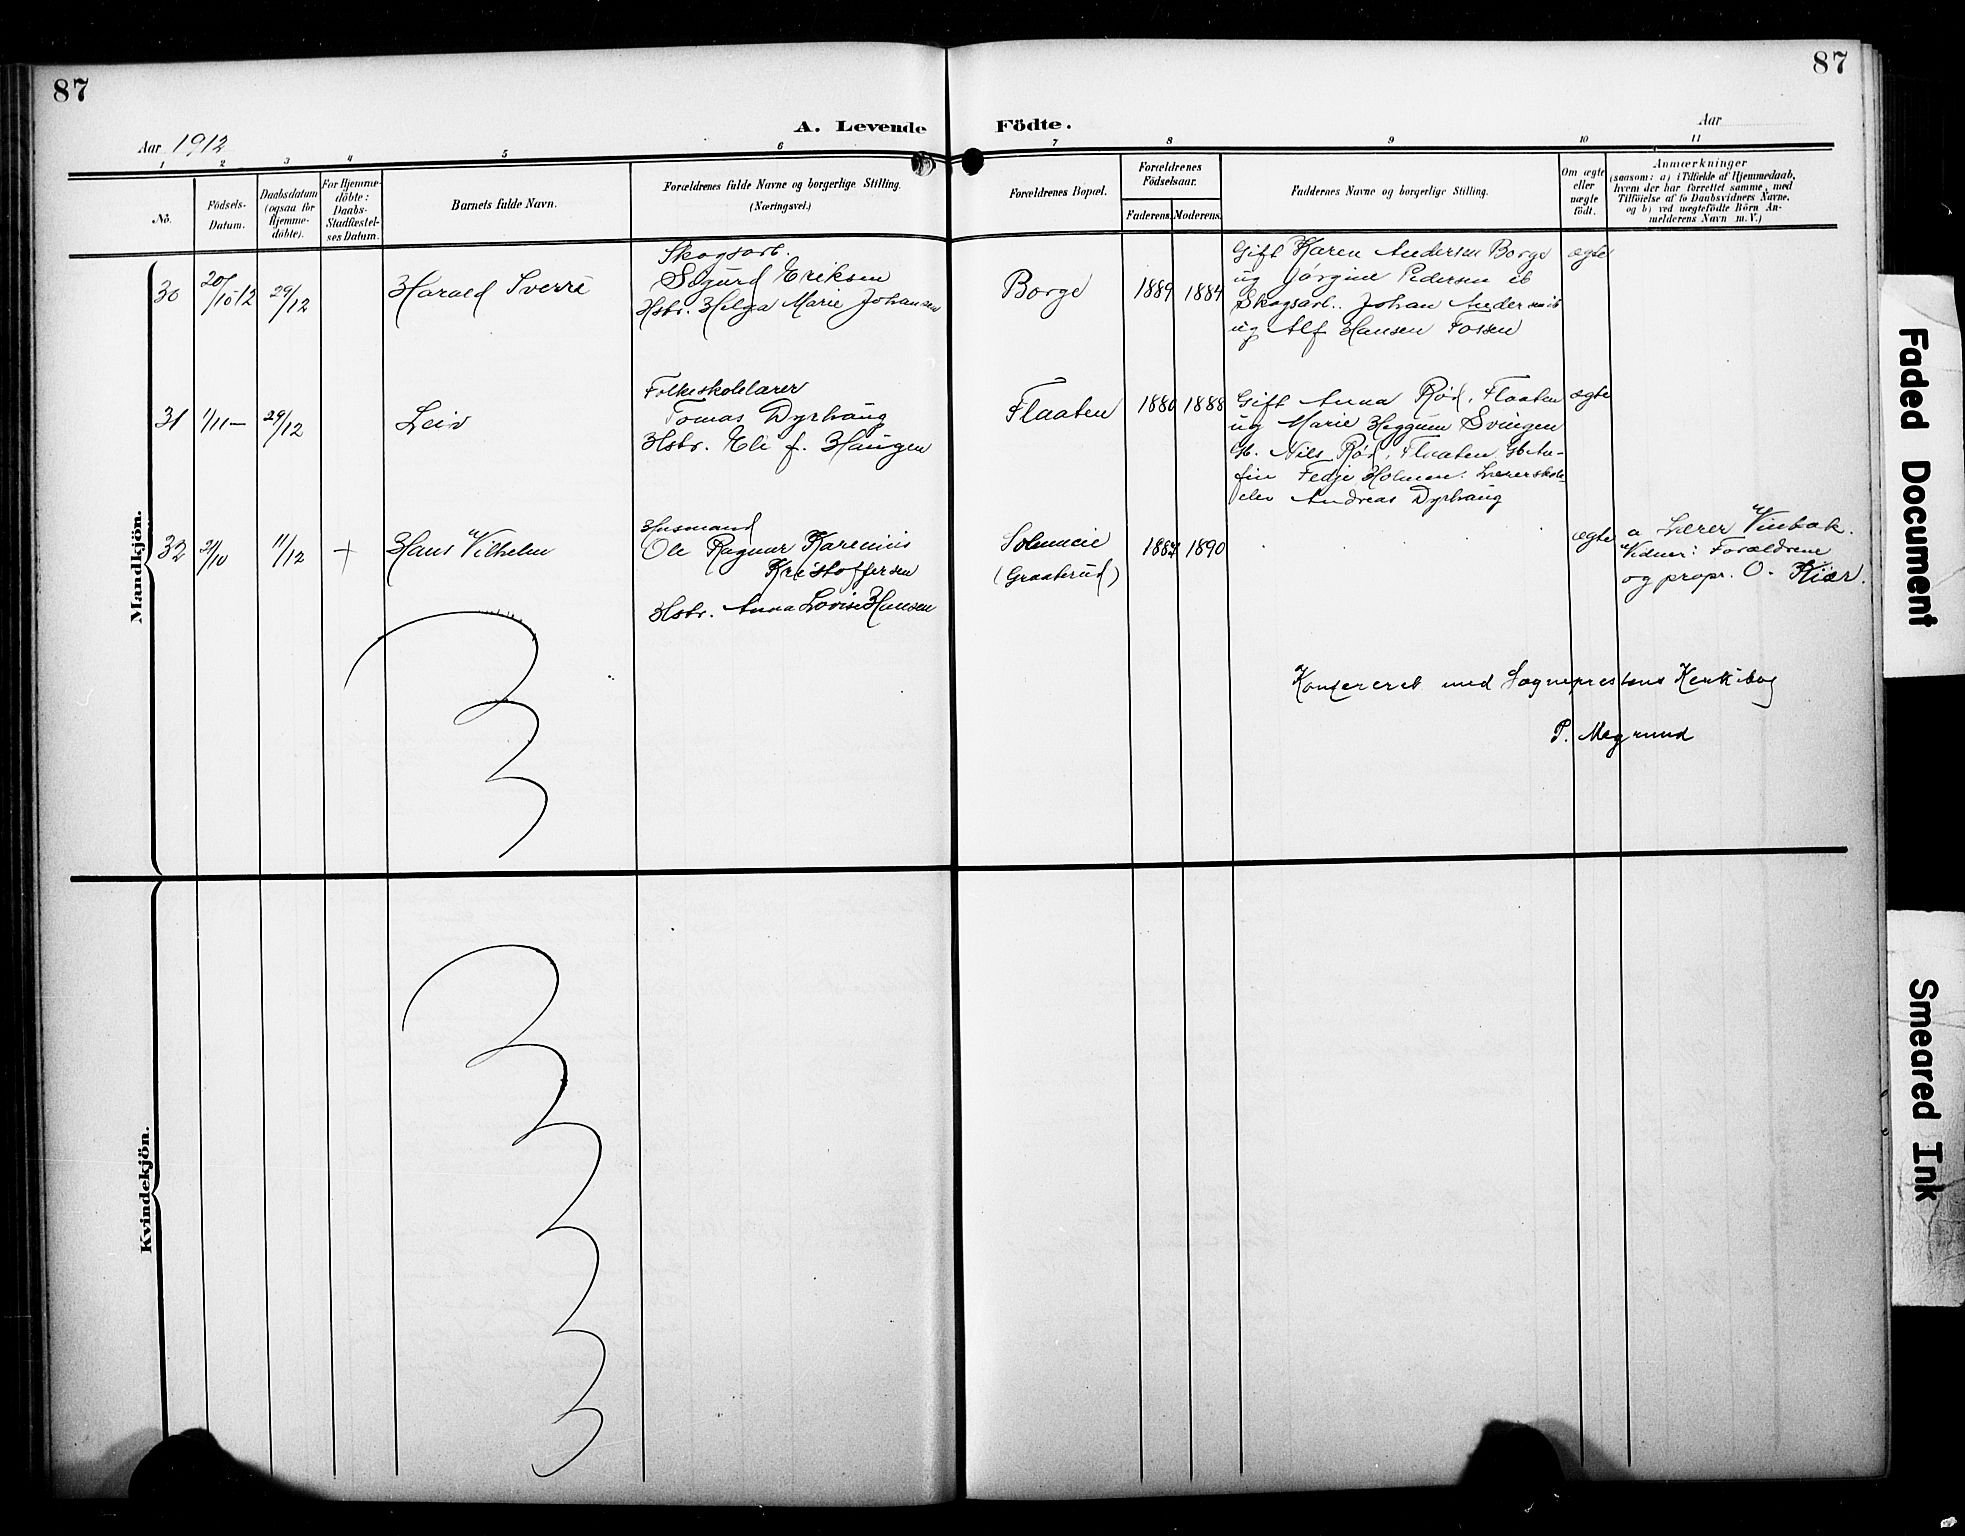 87
87
A. Levende Födte.
Aar 1912
Aar
1 2 3 4 5 6 7 8 9 10 11
No.
Födsels-
Datum.
Daabsdatum
(ogsaa for
Hjemme-
döbte).
For Hjemme-
döbte:
Daabs-
Stadfæstel-
ses Datum.
Barnets fulde Navn.
Forældrenes fulde Navne og borgerlige Stilling.
(Næringsvei.)
Forældrenes Bopæl.
Forældrenes
Födselsaar.
Faderens. Moderens.
Faddernes Navne og borgerlige Stilling.
Om ægte
eller
uægte
födt.
Anmærkninger
(saasom: a) i Tilfælde af Hjemmedaab,
hvem der har forrettet samme, med
Tilföielse af to Daabsvidners Navne,
og b) ved uægtefödte Börn An-
melderens Navn m. V.)
Mandkjön.
30
20/10 12
29/12
Harald Sverre
Skogsarb.
Sigurd Eriksen
Hstr. Helga Marie Johansen
Borge
1889
1884
Gift Karen Andersen Borge
ug Jørgine Pedersen ib
Skogsarb. Johan Andersen ib
ug Alf Hansen Fossen
ægte
31
1/11 —
29/12
Leiv
Folkeskolelærer
Tomas Dyrhaug
Hstr. Eli f. Haugen
Flaaten
1880
1888
Gift Anna Rød, Flaaten
ug Marie Heggum Svingen
Gb. Nils Rød, Flaaten
Fedje Holmen. Lærerskole-
elev Andreas Dyrhaug
ægte
32
11/12
+
Hans Vilhelm
Husmand
Ole Ragnar Karenius
Kristoffersen
Hstr. Anna Lovise Hansen
(Graaterud)
1887
1890
ægte
a Lærer Vinbæk.
Vidner: Forældrene
og propr. O. Kiær.
Konfereret med Sogneprestens Kerkibog
P. Mægrund
Kvindekjön.
Faded Document
Smeared Ink